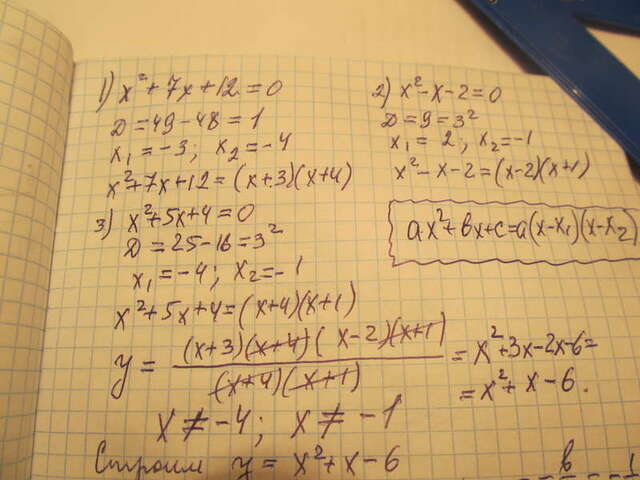 1) x² + 7x + 12 = 0
D = 49 - 48 = 1
x₁ = -3; x₂ = -4
x² + 7x + 12 = (x+3)(x+4)
2) x² - x - 2 = 0
D = 9 = 3²
x₁ = 2; x₂ = -1
x² - x - 2 = (x-2)(x+1)
ax² + bx + c = a(x-x₁)(x-x₂)
3) x² + 5x + 4 = 0
D = 25 - 16 = 3²
x₁ = -4; x₂ = -1
x² + 5x + 4 = (x+4)(x+1)
y = (x+3)(x+4)(x-2)(x+1) / (x+4)(x+1) = x² + 3x - 2x - 6 =
= x² + x - 6.
x ≠ -4; x ≠ -1
Строим y = x² + x - 6